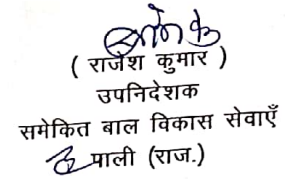 ( राजेश कुमार )
उपनिदेशक
समेकित बाल विकास सेवाएँ
पाली (राज.)